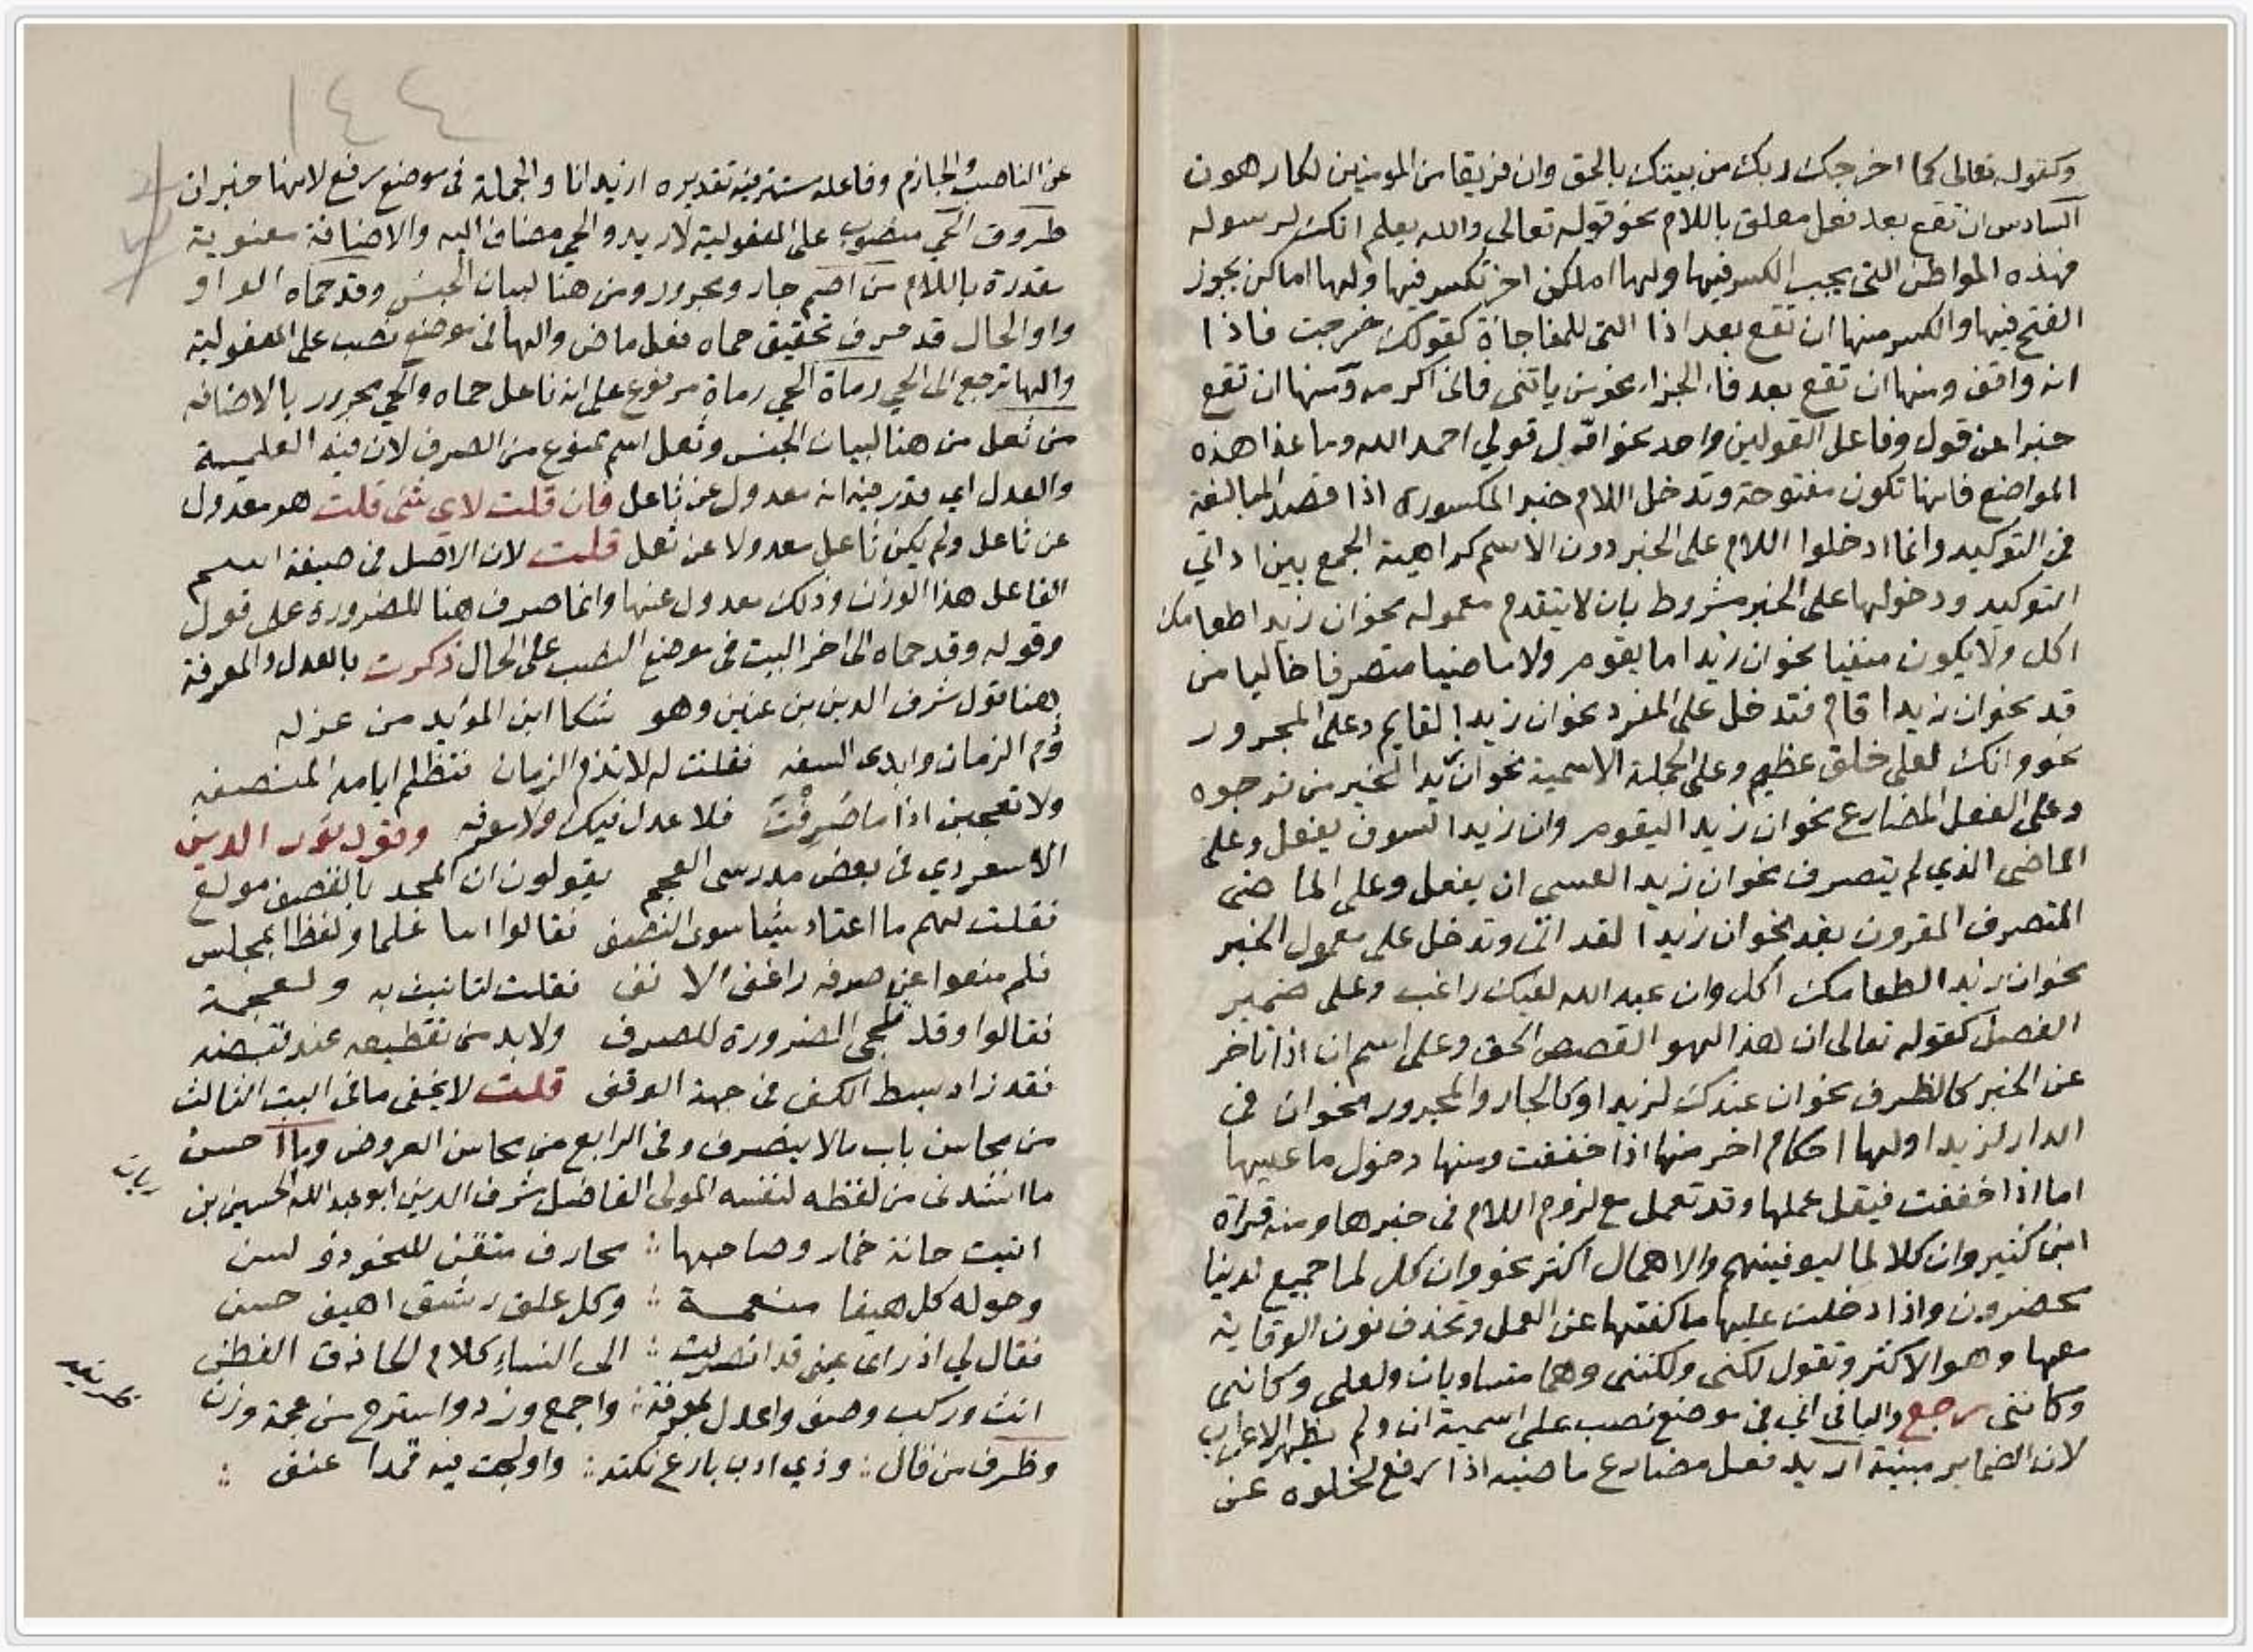 وكقوله تعالى كما اخرجك ربك من بيتك بالحق وان فريقا من المومنين لكارهون
السادس ان تقع بعد فعل معلق باللام نحو قوله تعالى والله يعلم انك لرسوله
فهذه المواطن التي يجب الكسر فيها ولها اماكن اخر تكسر فيها ولها اماكن يجوز
الفتح فيها والكسر منها ان تقع بعد اذا التي للمفاجاة كقولك خرجت فاذا
انه واقف ومنها ان تقع بعد فاء الجزا نحو من ياتني فاني اكرمه ومنها ان تقع
خبرا عن قول وفاعل القولين واحد نحو اول قولي احمد الله وما عدا هذه
المواضع فانها تكون مفتوحة وتدخل اللام خبر المكسورة اذا قصد المبالغة
في التوكيد وانما ادخلوا اللام على الخبر دون الاسم كراهية الجمع بين اداتي
التوكيد ودخولها على الخبر مشروط بان لا يتقدم معموله نحو ان زيدا طعامك
اكل ولا يكون منفيا نحو ان زيدا ما يقوم ولا ماضيا متصرفا خاليا من
قد نحو ان زيدا قام فتدخل على المفرد نحو ان زيدا لقايم وعلى المجرور
نحو وانك لعلى خلق عظيم وعلى الجملة الاسمية نحو ان زيدا لخير من ترجوه
وعلى الفعل المضارع نحو ان زيدا ليقوم وان زيدا لسوف يفعل وعلى
الماضي الذي لم يتصرف نحو ان زيدا لعسى ان يفعل وعلى الماضي
المتصرف المقرون بقد نحو ان زيدا لقد اتى وتدخل على معمول الخبر
نحو ان زيدا لطعامك اكل وان عبد الله لفيك راغب وعلى ضمير
الفصل كقوله تعالى ان هذا لهو القصص الحق وعلى اسم ان اذا تاخر
عن الخبر كالظرف نحو ان عندك لزيدا وكالجار والمجرور نحو ان في
الدار لزيدا ولها احكام اخر منها اذا خففت ومنها دخول ما عليها
اما اذا خففت فيقل عملها وقد تعمل مع لزوم اللام في خبرها ومنه قراة
ابن كثير وان كلا لما ليوفينهم والاهمال اكثر نحو وان كل لما جميع لدينا
محضرون واذا دخلت عليها ما كفتها عن العمل وتحذف نون الوقاية
معها وهو الاكثر وتقول لكني ولكنني وهما متساويان ولعلي وكاني
وكانني رجع والياء في اني في موضع نصب على اسمية ان ولم يظهر الاعراب
لان الضماير مبنية اريد فعل مضارع ماضيه اراد رفع لخلوه عن
عن الناصب والجازم وفاعله مستتر فيه تقديره اريد انا والجملة في موضع رفع لانها خبر ان
طروق الحي منصوب على المفعولية لاريد والحي مضاف اليه والاضافة معنوية
مقدرة باللام من اضم جار ومجرور ومن هنا لبيان الجنس وقد حماه الواو
واو الحال قد حرف تحقيق حماه فعل ماض والها في موضع نصب على المفعولية
والها ترجع الى الحي رماة الحي رماة مرفوع على انه فاعل حماه والحي مجرور بالاضافه
من ثعل من هنا لبيان الجنس وثعل اسم ممنوع من الصرف لان فيه العلمية
والعدل اي قدر فيه انه معدول عن ثاعل فان قلت لاي شي قلت هو معدول
عن ثاعل ولم يكن ثاعل معدولا عن ثعل قلت لان الاصل في صيغة اسم
الفاعل هذا الوزن وذلك معدول عنها وانما صرف هنا للضرورة على قول
وقوله وقد حماه الى اخر البيت في موضع النصب على الحال ذكرت بالعدل والمعرفة
هنا قول شرف الدين بن عنين وهو شكا ابن المويد من عزله
وذم الزمان وابدى السفه فقلت له لا تذم الزمان فتظلم ايامه المنصفه
ولا تعجبن اذا ما صرفت فلا عدل فيك ولا معرفه وقول نور الدين
الاسعردي في بعض مدرسي العجم يقولون ان المجد بالقصف مولع
فقلت لهم ما اعتاد شيا سوى القصف فقالوا اما غلما ولفظا بمجلس
فلم منعوا عن صرفه راغم الانف فقلت لتانيث به ولعجمة
فقالوا وقد تلجي الضرورة للصرف ولا بد من تقطيعه عند قبضه
فقد زاد بسط الكف في جهة الوقف قلت لا يخفى ما في البيت الثالث
من محاسن باب ما لا ينصرف وفي الرابع من محاسن العروض وما احسن
ما انشدني من لفظه لنفسه المولى الفاضل شرف الدين ابو عبد الله الحسين بن
ريان
اتيت حانة خمار وصاحبها محارف متقن للنحو ذو لسن
وحوله كل هيفا منعمة وكل علق رشيق اهيف حسن
فقال لي اذ راى عيني قد انصرفت الى النساء كلام الحاذق الفطن
انث وركب وصف واعدل بمعرفة واجمع وزد واسترح من عجمة وزن
وظرف من قال وذي ادب بارع نكته واولجت فيه قمدا عنف